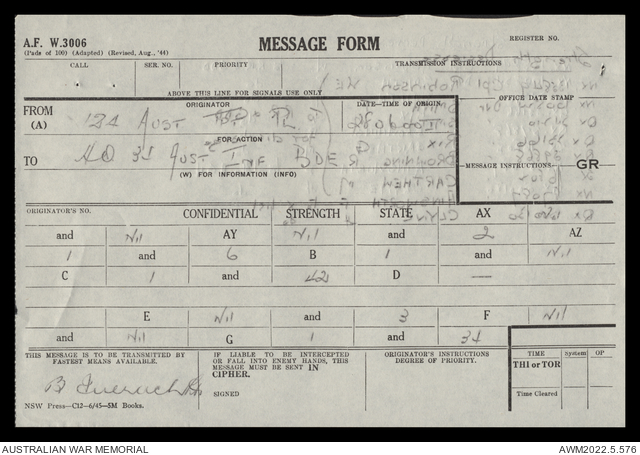 A.F. W.3006
(Pads of 100) (Adapted) (Revised, Aug., '44)
MESSAGE FORM
REGISTER NO.
CALL SER. NO. PRIORITY TRANSMISSION INSTRUCTIONS
ABOVE THIS LINE FOR SIGNALS USE ONLY
OFFICE DATE STAMP
FROM
(A)
ORIGINATOR
DATE—TIME OF ORIGIN
124 AUST
FOR ACTION
TO HQ 34 AUST INF BDE
(W) FOR INFORMATION (INFO)
MESSAGE INSTRUCTIONS GR
ORIGINATOR'S NO. CONFIDENTIAL STRENGTH STATE AX
and Nil AY Nil and 2 AZ
1 and 6 B 1 and Nil
C 1 and 42 D —
E Nil and 3 F Nil
and Nil G 1 and 34
THIS MESSAGE IS TO BE TRANSMITTED BY FASTEST MEANS AVAILABLE.
IF LIABLE TO BE INTERCEPTED OR FALL INTO ENEMY HANDS, THIS MESSAGE MUST BE SENT IN CIPHER.
SIGNED
ORIGINATOR'S INSTRUCTIONS
DEGREE OF PRIORITY.
TIME System OP
THI or TOR
Time Cleared
NSW Press—C12—6/45—5M Books.
AUSTRALIAN WAR MEMORIAL
AWM2022.5.576